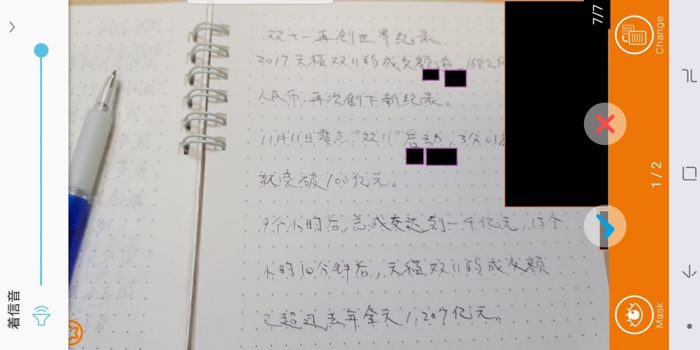 双十一再创世界纪录
2017天猫双11的成交额
人民币,再次创下新纪录。
11月11日零点,"双11"启动,3分01
就突破100亿元。
9个小时后,总成交达到一千亿元,13个
小时10分钟后,天猫双11的成交额
已超过去年全天1,207亿元。
着信音
7/7
Change
1/2
Mask